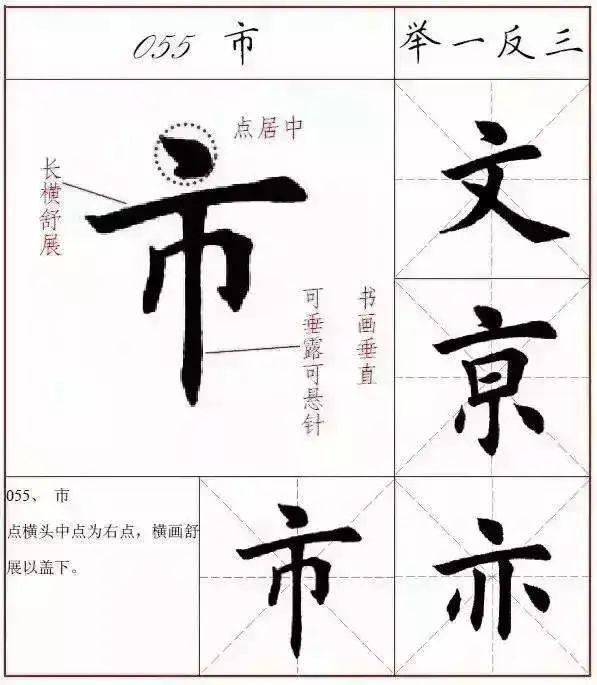 055 市
举一反三
市
点居中
长横舒展
可垂露可悬针
书画垂直
文
京
055、 市
点横头中点为右点，横画舒
展以盖下。
市
亦